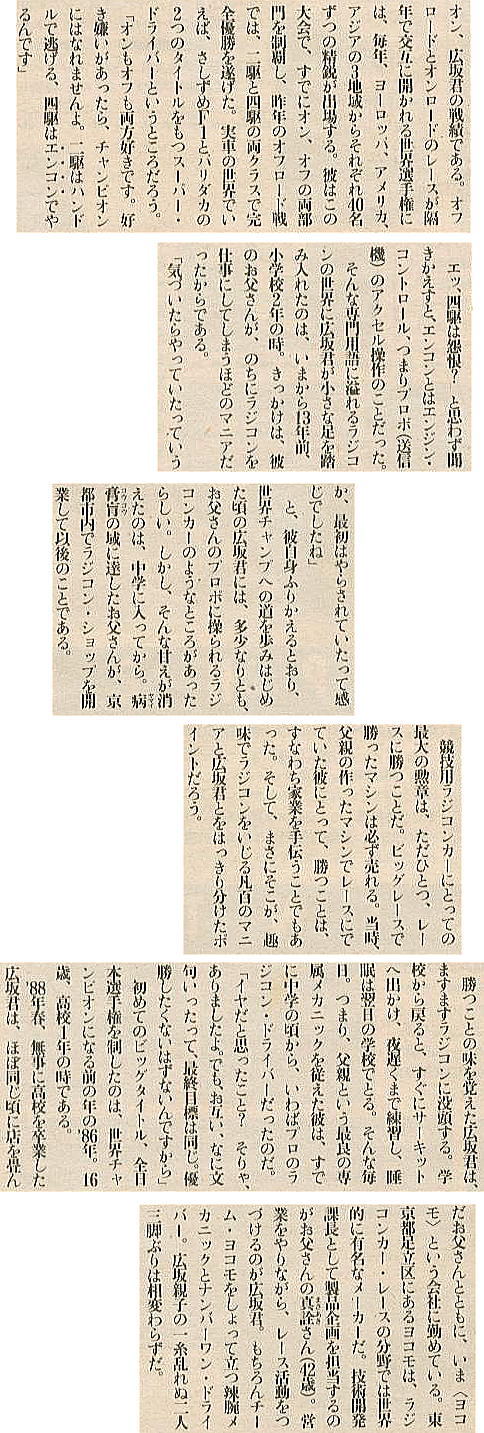 オン、広坂君の戦績である。オフ
ロードとオンロードのレースが隔
年で交互に開かれる世界選手権に
は、毎年、ヨーロッパ、アメリカ、
アジアの3地域からそれぞれ40名
ずつの精鋭が出場する。彼はこの
大会で、すでにオン、オフの両部
門を制覇し、昨年のオフロード戦
では、二駆と四駆の両クラスで完
全優勝を遂げた。実車の世界でい
えば、さしずめF1とパリダカの
2つのタイトルをもつスーパー・
ドライバーというところだろう。
「オンもオフも両方好きです。好
き嫌いがあったら、チャンピオン
にはなれませんよ。二駆はハンド
ルで逃げる、四駆はエンコンでや
るんです」
エッ、四駆は怨恨?　と思わず聞
きかえすと、エンコンとはエンジン・
コントロール、つまりプロポ(送信
機)のアクセル操作のことだった。
そんな専門用語に溢れるラジコ
ンの世界に広坂君が小さな足を踏
み入れたのは、いまから13年前、
小学校2年の時。きっかけは、彼
のお父さんが、のちにラジコンを
仕事にしてしまうほどのマニアだ
ったからである。
「気づいたらやっていたっていう
か、最初はやらされていたって感
じでしたね」
と、彼自身ふりかえるとおり、
世界チャンプへの道を歩みはじめ
た頃の広坂君には、多少なりとも、
お父さんのプロポに操られるラジ
コンカーのようなところがあった
らしい。しかし、そんな甘えが消
えたのは、中学に入ってから。病
膏肓の域に達したお父さんが、京
都市内でラジコン・ショップを開
業して以後のことである。
競技用ラジコンカーにとっての
最大の勲章は、ただひとつ、レー
スに勝つことだ。ビッグレースで
勝ったマシンは必ず売れる。当時、
父親の作ったマシンでレースにで
ていた彼にとって、勝つことは、
すなわち家業を手伝うことでもあ
った。そして、まさにそこが、趣
味でラジコンをいじる凡百のマニ
アと広坂君とをはっきり分けたポ
イントだろう。
勝つことの味を覚えた広坂君は、
ますますラジコンに没頭する。学
校から戻ると、すぐにサーキット
へ出かけ、夜遅くまで練習し、睡
眠は翌日の学校でとる。そんな毎
日。つまり、父親という最良の専
属メカニックを従えた彼は、すで
に中学の頃から、いわばプロのラ
ジコン・ドライバーだったのだ。
「イヤだと思ったこと?　そりゃ、
ありましたよ。でも、お互い、なに文
句いったって、最終目標は同じ。優
勝したくないはずないんですから」
初めてのビッグタイトル、全日
本選手権を制したのは、世界チャ
ンピオンになる前の年の'86年。16
歳、高校1年の時である。
'88年春、無事に高校を卒業した
広坂君は、ほぼ同じ頃に店を畳ん
だお父さんとともに、いま〈ヨコ
モ〉という会社に勤めている。東
京都足立区にあるヨコモは、ラジ
コンカー・レースの分野では世界
的に有名なメーカーだ。技術開発
課長として製品企画を担当するの
がお父さんの真詮さん(42歳)。営
業をやりながら、レース活動をつ
づけるのが広坂君。もちろんチー
ム・ヨコモをしょって立つ辣腕メ
カニックとナンバーワン・ドライ
バー。広坂親子の一糸乱れぬ二人
三脚ぶりは相変わらずだ。